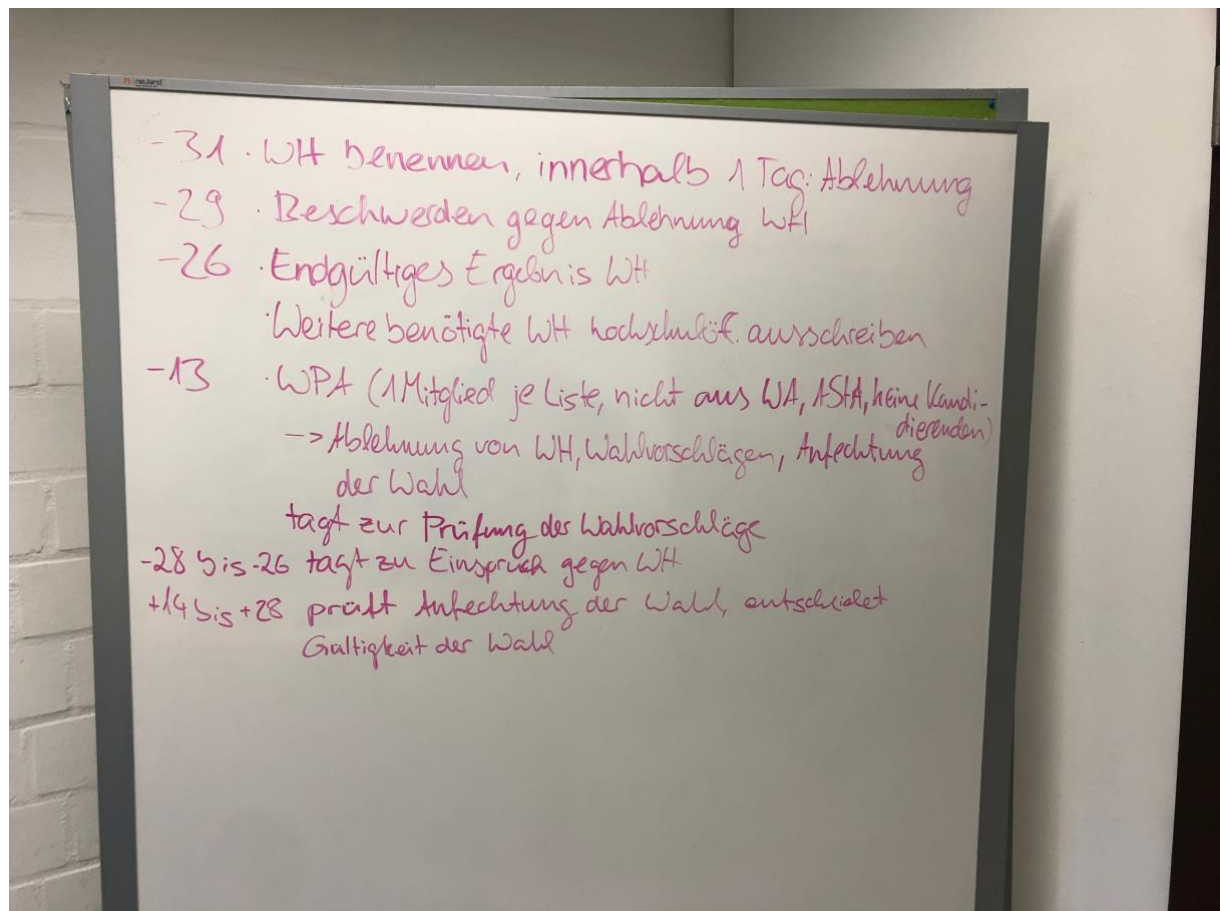 neuland
-31 · WH benennen, innerhalb 1 Tag: Ablehnung
-29 · Beschwerden gegen Ablehnung WH
-26 · Endgültiges Ergebnis WH
· Weitere benötigte WH hochschulöf. ausschreiben
-13 · WPA (1 Mitglied je Liste, nicht aus WA, AStA, keine Kandi-
dierenden)
-> Ablehnung von WH, Wahlvorschlägen, Anfechtung
der Wahl
tagt zur Prüfung der Wahlvorschläge
-28 bis -26 tagt zu Einspruch gegen WH
+14 bis +28 prüft Anfechtung der Wahl, entscheidet
Gültigkeit der Wahl